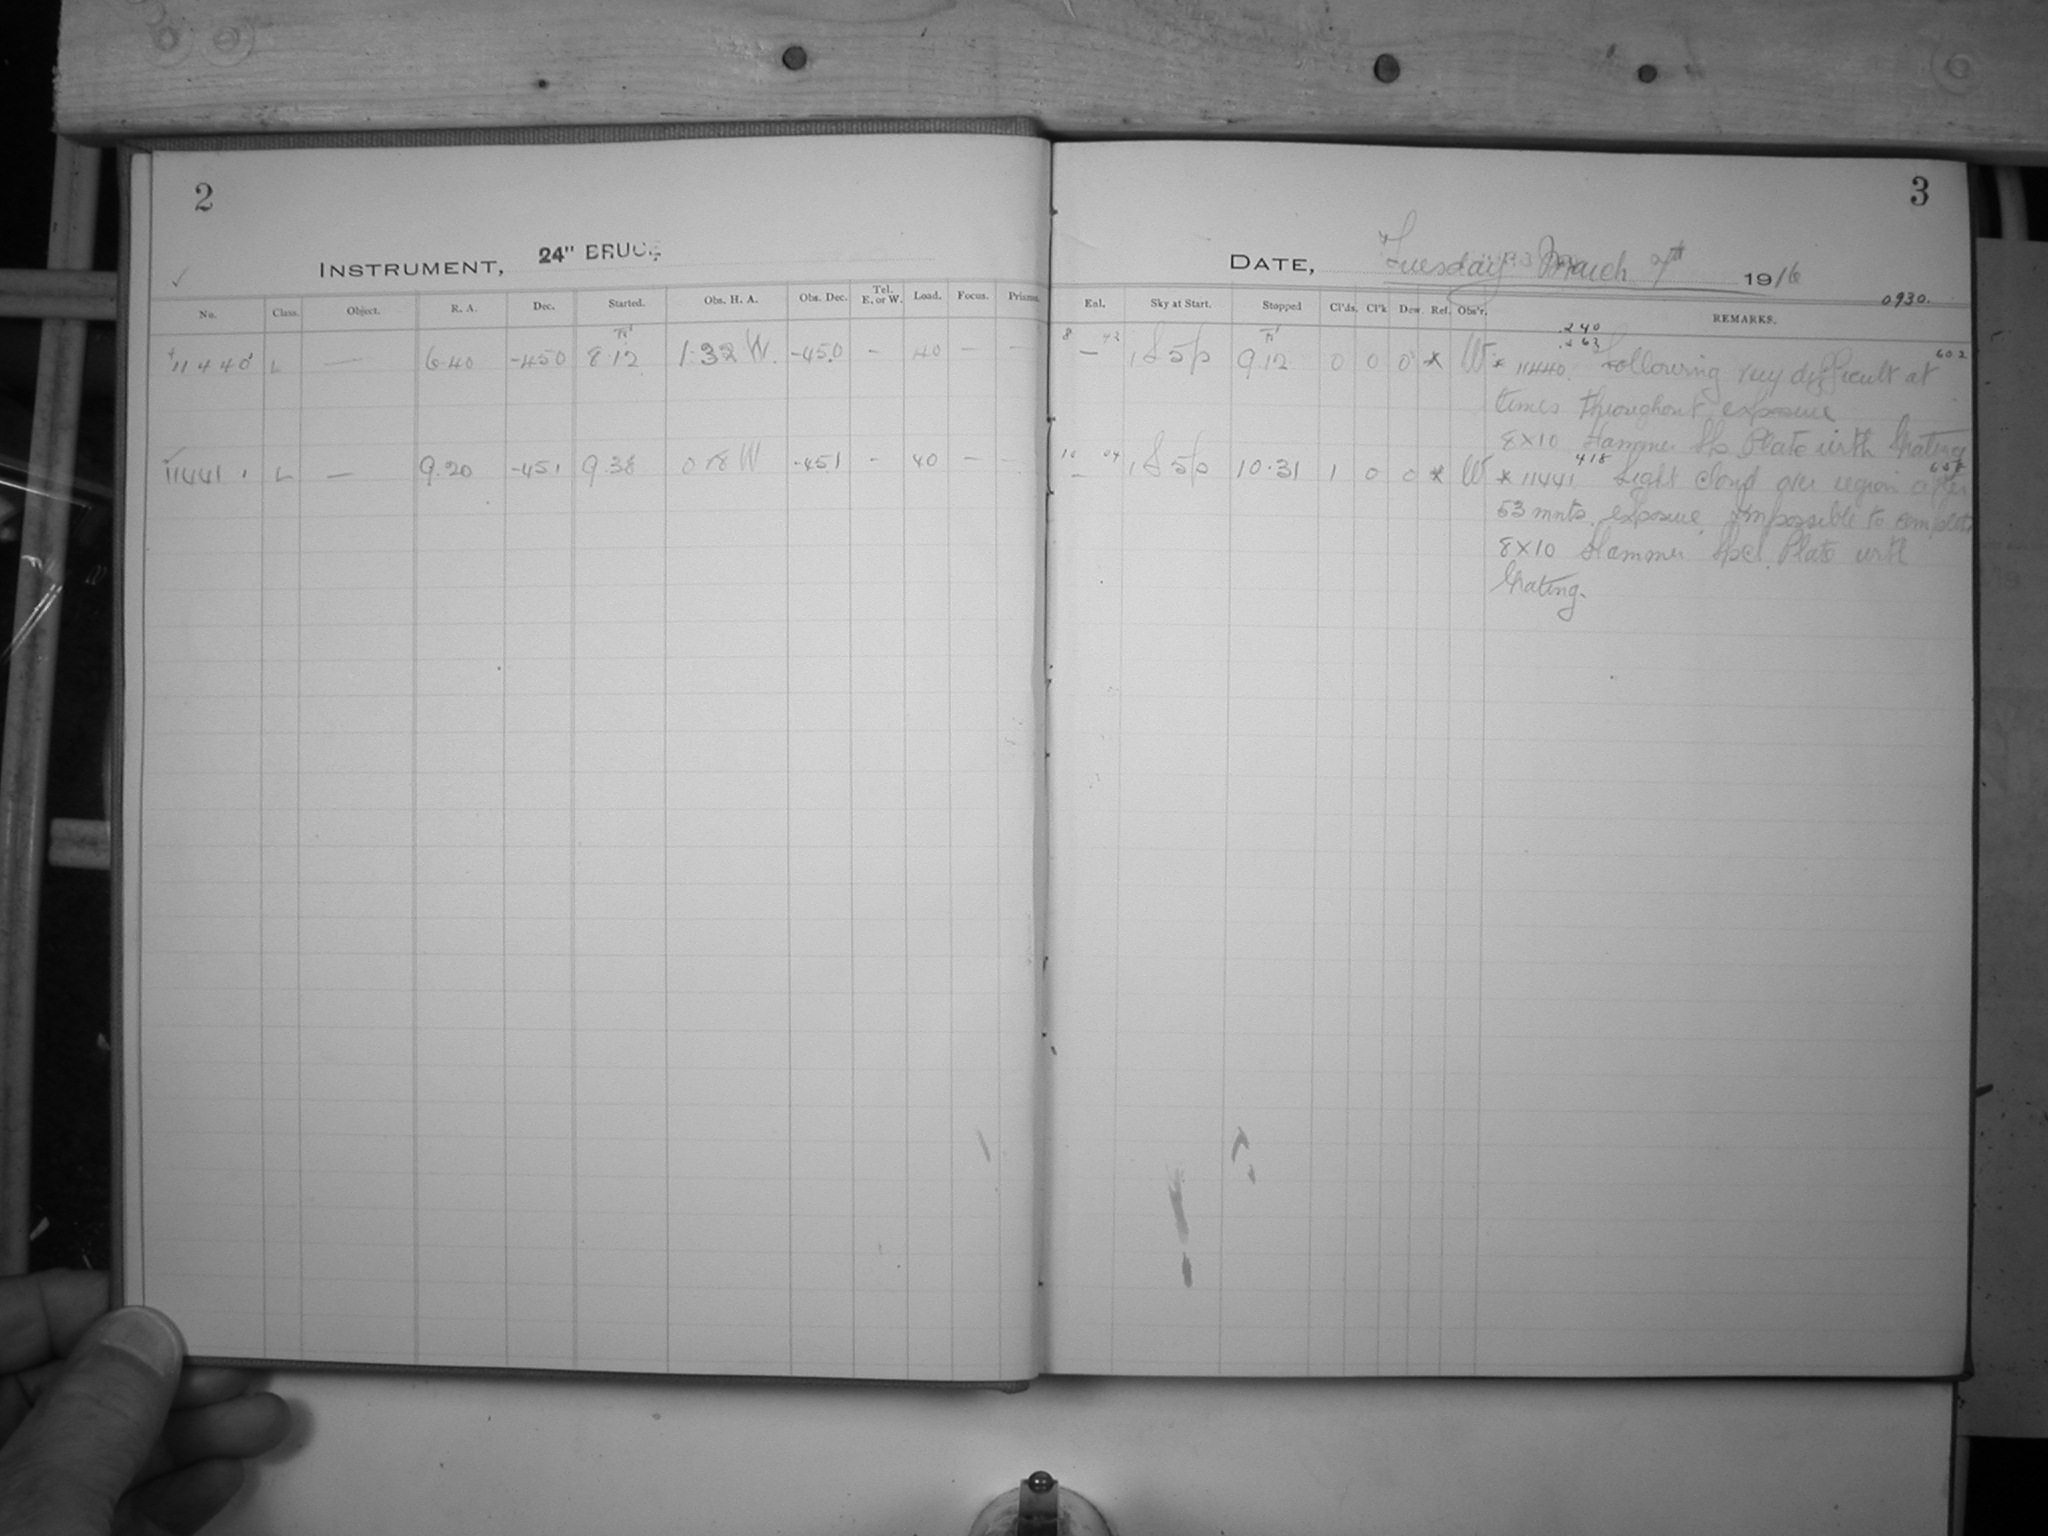 2
INSTRUMENT, 24" BRUCE
No. Class. Object. R. A. Dec. Started. Obs. H. A. Obs. Dec. Tel. E. or W. Load. Focus. Prisms.
11440 L — 6.40 -45.0 8.12 1.32 W. -45.0 - 40 — —
11441 L — 9.20 -45.1 9.38 0.18 W -45.1 - 40 — —
3
DATE, Tuesday March 7th 1916
0930.
Eal. Sky at Start. Stopped Cl'ds. Cl'k Dew. Ref. Obs'r. REMARKS.
8 — 42 S5p 9.12 0 0 0 * W * 11440. Following very difficult at
.240
602
times throughout exposure
8X10 Hammer Sp Plate with Grating
10 — 04 S5p 10.31 1 0 0 * W * 11441 Light Cloud over region after
.418
53 mnts. exposure impossible to complete
8X10 Hammer Spcl. Plate with
Grating.